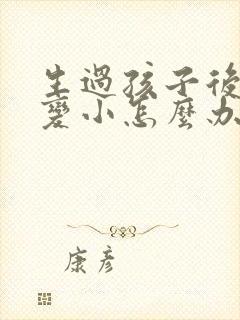 生過孩子後
變小怎麼办
康彦